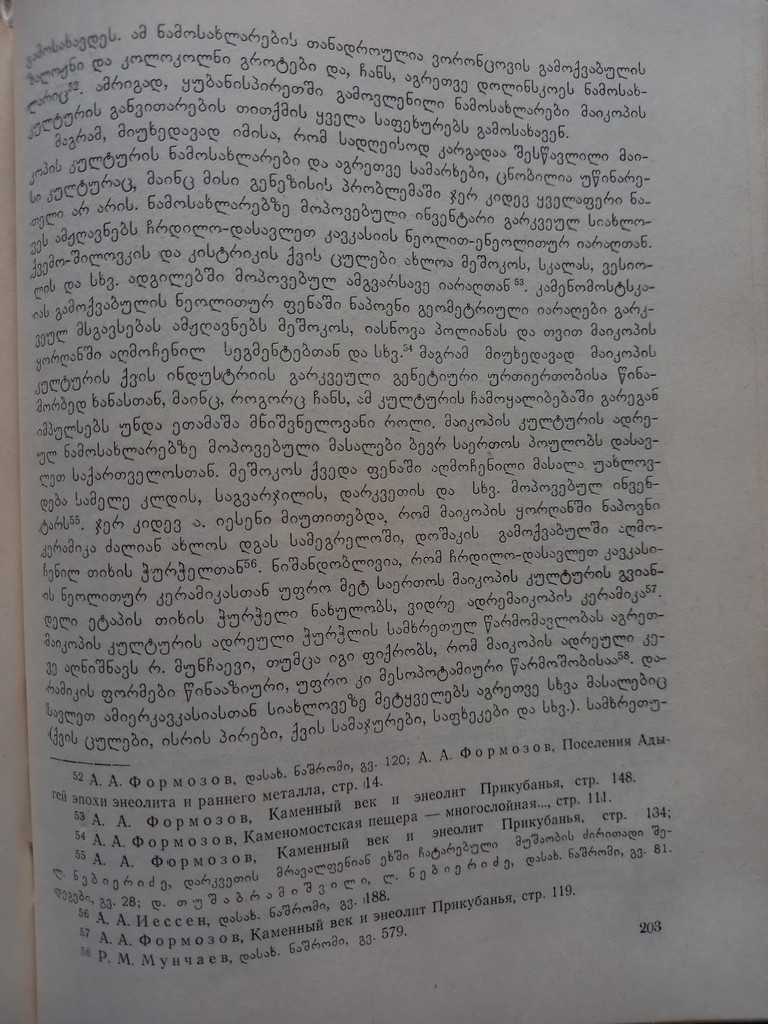 გამოსახავდეს. ამ ნამოსახლარების თანადროულია ვორონცოვის გამოქვაბულის
და კოლოკოლნი გროტები და, ჩანს, აგრეთვე დოლინსკოეს ნამოსახ-
ლარიც⁵². ამრიგად, ყუბანისპირეთში გამოვლენილი ნამოსახლარები მაიკოპის
კულტურის განვითარების თითქმის ყველა საფეხურებს გამოსახავენ.
მაგრამ, მიუხედავად იმისა, რომ სადღეისოდ კარგადაა შესწავლილი მაი-
კოპის კულტურის ნამოსახლარები და აგრეთვე სამარხები, ცნობილია უწინარე-
სი კულტურაც, მაინც მისი გენეზისის პრობლემაში ჯერ კიდევ ყველაფერი ნა-
თელი არ არის. ნამოსახლარებზე მოპოვებული ინვენტარი გარკვეულ სიახლო-
ვეს ამჟღავნებს ჩრდილო-დასავლეთ კავკასიის ნეოლით-ენეოლითურ იარაღთან.
ქვემო-შილოვკის და კისტრიკის ქვის ცულები ახლოა მეშოკოს, სკალას, ვესიო-
ლის და სხვ. ადგილებში მოპოვებულ ამგვარსავე იარაღთან⁵³. კამენომოსტსკა-
იას გამოქვაბულის ნეოლითურ ფენაში ნაპოვნი გეომეტრიული იარაღები გარკ-
ვეულ მსგავსებას ამჟღავნებს მეშოკოს, იასნოვა პოლიანას და თვით მაიკოპის
ყორღანში აღმოჩენილ სეგმენტებთან და სხვ.⁵⁴ მაგრამ მიუხედავად მაიკოპის
კულტურის ქვის ინდუსტრიის გარკვეული გენეტიური ურთიერთობისა წინა-
მორბედ ხანასთან, მაინც, როგორც ჩანს, ამ კულტურის ჩამოყალიბებაში გარეგან
იმპულსებს უნდა ეთამაშა მნიშვნელოვანი როლი. მაიკოპის კულტურის ადრე-
ულ ნამოსახლარებზე მოპოვებული მასალები ბევრ საერთოს პოულობს დასავ-
ლეთ საქართველოსთან. მეშოკოს ქვედა ფენაში აღმოჩენილი მასალა უახლოვ-
დება სამელე კლდის, საგვარჯილის, დარკვეთის და სხვ. მოპოვებულ ინვენ-
ტარს⁵⁵. ჯერ კიდევ ა. იესენი მიუთითებდა, რომ მაიკოპის ყორღანში ნაპოვნი
კერამიკა ძალიან ახლოს დგას სამეგრელოში, დოშაკის გამოქვაბულში აღმო-
ჩენილ თიხის ჭურჭელთან⁵⁶. ნიშანდობლივია, რომ ჩრდილო-დასავლეთ კავკასი-
ის ნეოლითურ კერამიკასთან უფრო მეტ საერთოს მაიკოპის კულტურის გვიან-
დელი ეტაპის თიხის ჭურჭელი ნახულობს, ვიდრე ადრემაიკოპის კერამიკა⁵⁷.
მაიკოპის კულტურის ადრეული ჭურჭლის სამხრეთულ წარმომავლობას აგრეთ-
ვე აღნიშნავს რ. მუნჩაევი, თუმცა იგი ფიქრობს, რომ მაიკოპის ადრეული კე-
რამიკის ფორმები წინააზიური, უფრო კი მესოპოტამიური წარმოშობისაა⁵⁸. და-
სავლეთ ამიერკავკასიასთან სიახლოვეზე მეტყველებს აგრეთვე სხვა მასალებიც
(ქვის ცულები, ისრის პირები, ქვის სამაჯურები, საფხეკები და სხვ.). სამხრეთუ-
⁵² А. А. Формозов, დასახ. ნაშრომი, გვ. 120; А. А. Формозов, Поселения Ады-
гей эпохи энеолита и раннего металла, стр. 14.
⁵³ А. А. Формозов, Каменный век и энеолит Прикубанья, стр. 148.
⁵⁴ А. А. Формозов, Каменомостская пещера — многослойная..., стр. 111.
⁵⁵ А. А. Формозов, Каменный век и энеолит Прикубанья, стр. 134;
ლ. ნებიერიძე, დარკვეთის მრავალფენიან ეხში ჩატარებული მუშაობის ძირითადი შე-
დეგები, გვ. 28; დ. თუშაბრამიშვილი, ლ. ნებიერიძე, დასახ. ნაშრომი, გვ. 81.
⁵⁶ А. А. Иессен, დასახ. ნაშრომი, გვ. 188.
⁵⁷ А. А. Формозов, Каменный век и энеолит Прикубанья, стр. 119.
⁵⁸ Р. М. Мунчаев, დასახ. ნაშრომი, გვ. 579.
203